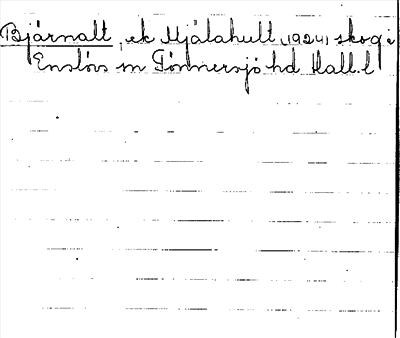 Bjärnalt, ek Mjälahult, (1924) skog i
Enslövs sn Tönnersjö hd Hall. l